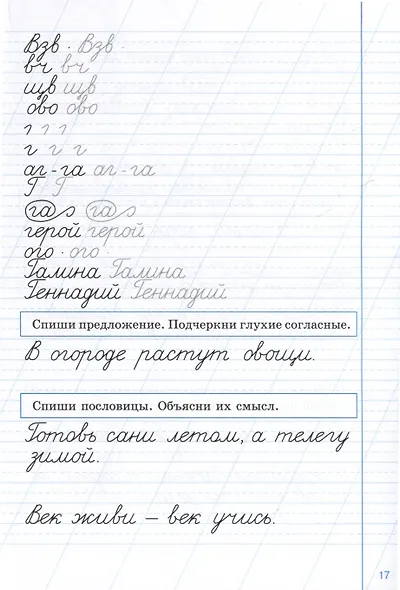 Взв · Взв ·
вч вч
щв щв
ово ово
г г г
аг-га аг-га
Г Г
га га
герой герой
ого · ого ·
Галина Галина
Геннадий Геннадий
Спиши предложение. Подчеркни глухие согласные.
В огороде растут овощи.
Спиши пословицы. Объясни их смысл.
Готовь сани летом, а телегу
зимой.
Век живи – век учись.
17